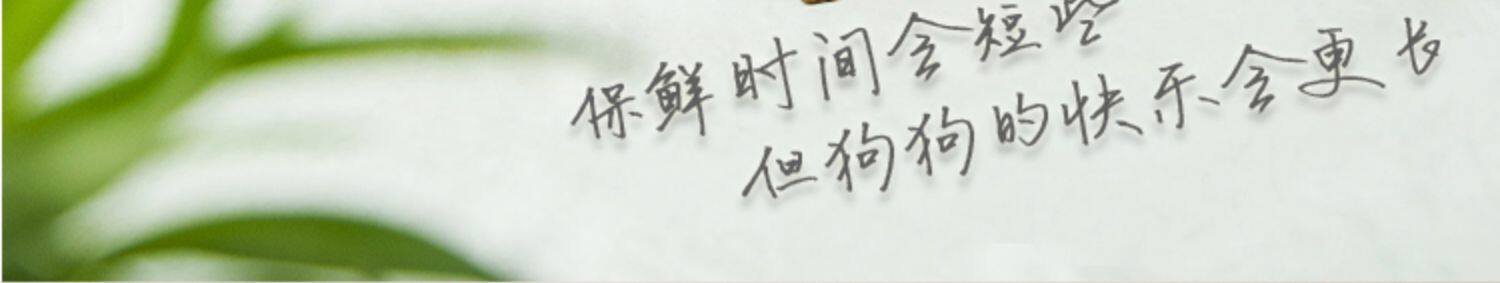 保鲜时间会短些
但狗狗的快乐会更长